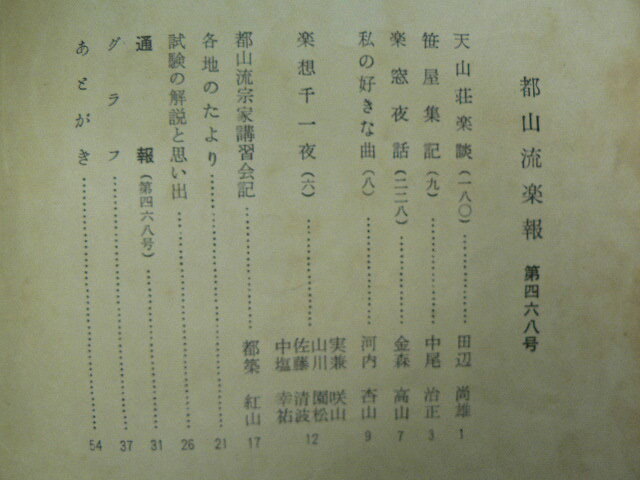 都山流楽報 第四六八号
天山荘楽談(一八〇)…………………田辺 尚雄 1
笹屋集記(九)…………………中尾 治正 3
楽窓夜話(二二八)…………………金森 高山 7
私の好きな曲(八)…………………河内 杏山 9
楽想千一夜(六)…………………実兼 咲山
山川 園松
佐藤 清波
中塩 幸祐 12
都山流宗家講習会記…………………都築 紅山 17
各地のたより…………………21
試験の解説と思い出…………………26
通報(第四六八号)…………………31
グラフ…………………37
あとがき…………………54